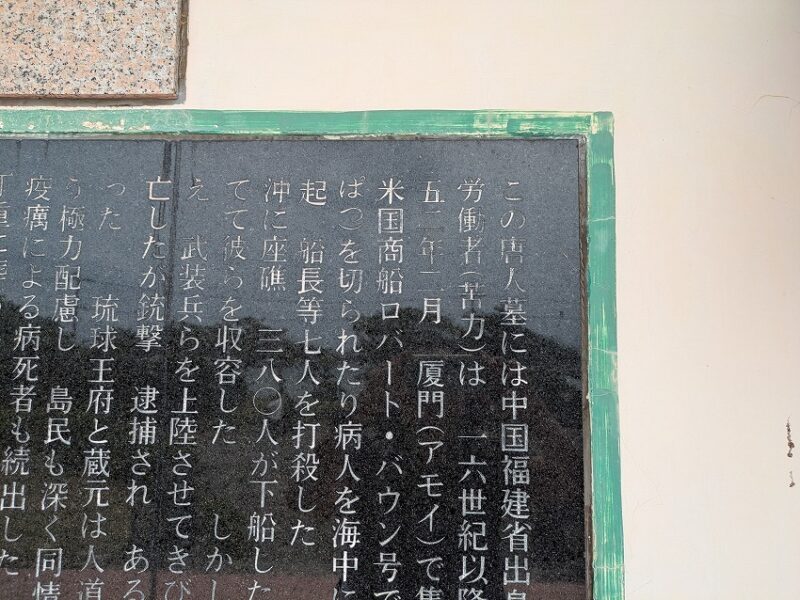 この唐人墓には中国福建省出身
労働者（苦力）は　一六世紀以降
五二年二月　厦門（アモイ）で集
米国商船ロバート・バウン号で
ぱつ）を切られたり病人を海中に
起　船長等七人を打殺した
沖に座礁　三八〇人が下船した
てて彼らを収容した　しかし
え　武装兵らを上陸させてきび
亡したが銃撃　逮捕され　ある
った　琉球王府と蔵元は人道
う極力配慮し　島民も深く同情
疫癘による病死者も続出した